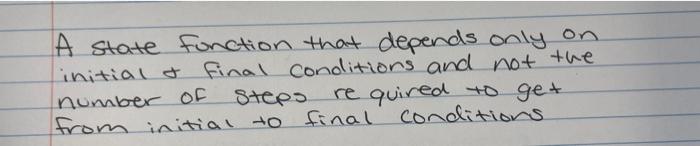 A state function that depends only on
initial & final conditions and not the
number of steps required to get
from initial to final conditions